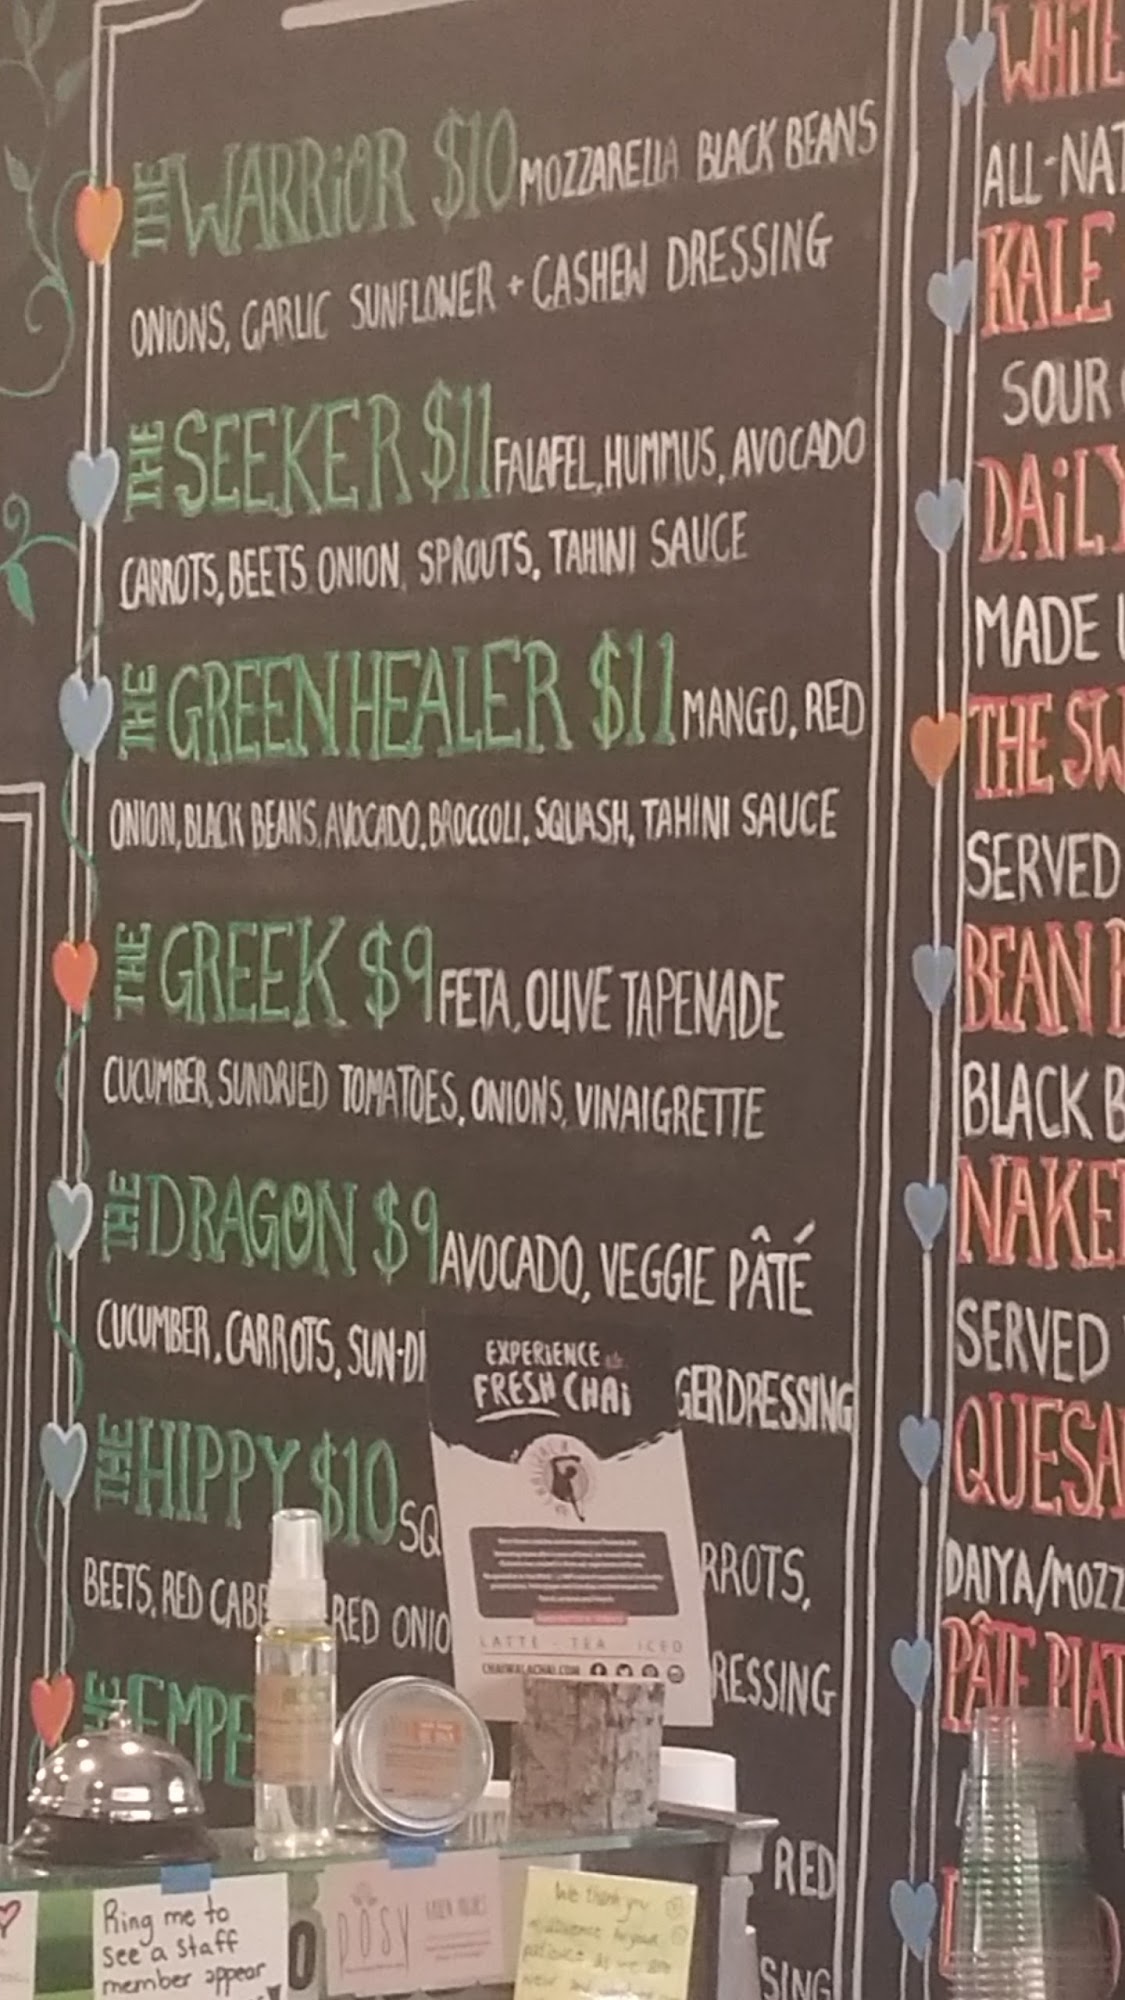 THE WARRIOR $10 MOZZARELLA BLACK BEANS
ONIONS, GARLIC SUNFLOWER + CASHEW DRESSING
THE SEEKER $11 FALAFEL, HUMMUS, AVOCADO
CARROTS, BEETS ONION, SPROUTS, TAHINI SAUCE
THE GREENHEALER $11 MANGO, RED
ONION, BLACK BEANS, AVOCADO, BROCCOLI, SQUASH, TAHINI SAUCE
THE GREEK $9 FETA, OLIVE TAPENADE
CUCUMBER, SUNDRIED TOMATOES, ONIONS, VINAIGRETTE
THE DRAGON $9 AVOCADO, VEGGIE PÂTÉ
CUCUMBER, CARROTS, SUN-D GERDRESSING
THE HIPPY $10 SQ RROTS,
BEETS, RED CABB RED ONIO RESSING
EMPE
RED
SING
WHITE
ALL-NAT
KALE
SOUR
DAILY
MADE
THE SW
SERVED
BEAN
BLACK B
NAKE
SERVED
QUESA
DAIYA/MOZZ
PÂTE PLAT
EXPERIENCE
FRESH CHAI
LATTE - TEA - ICED
CHAIWALACHAI.COM
Ring me to
see a staff
member appear
DOSY
We thank you